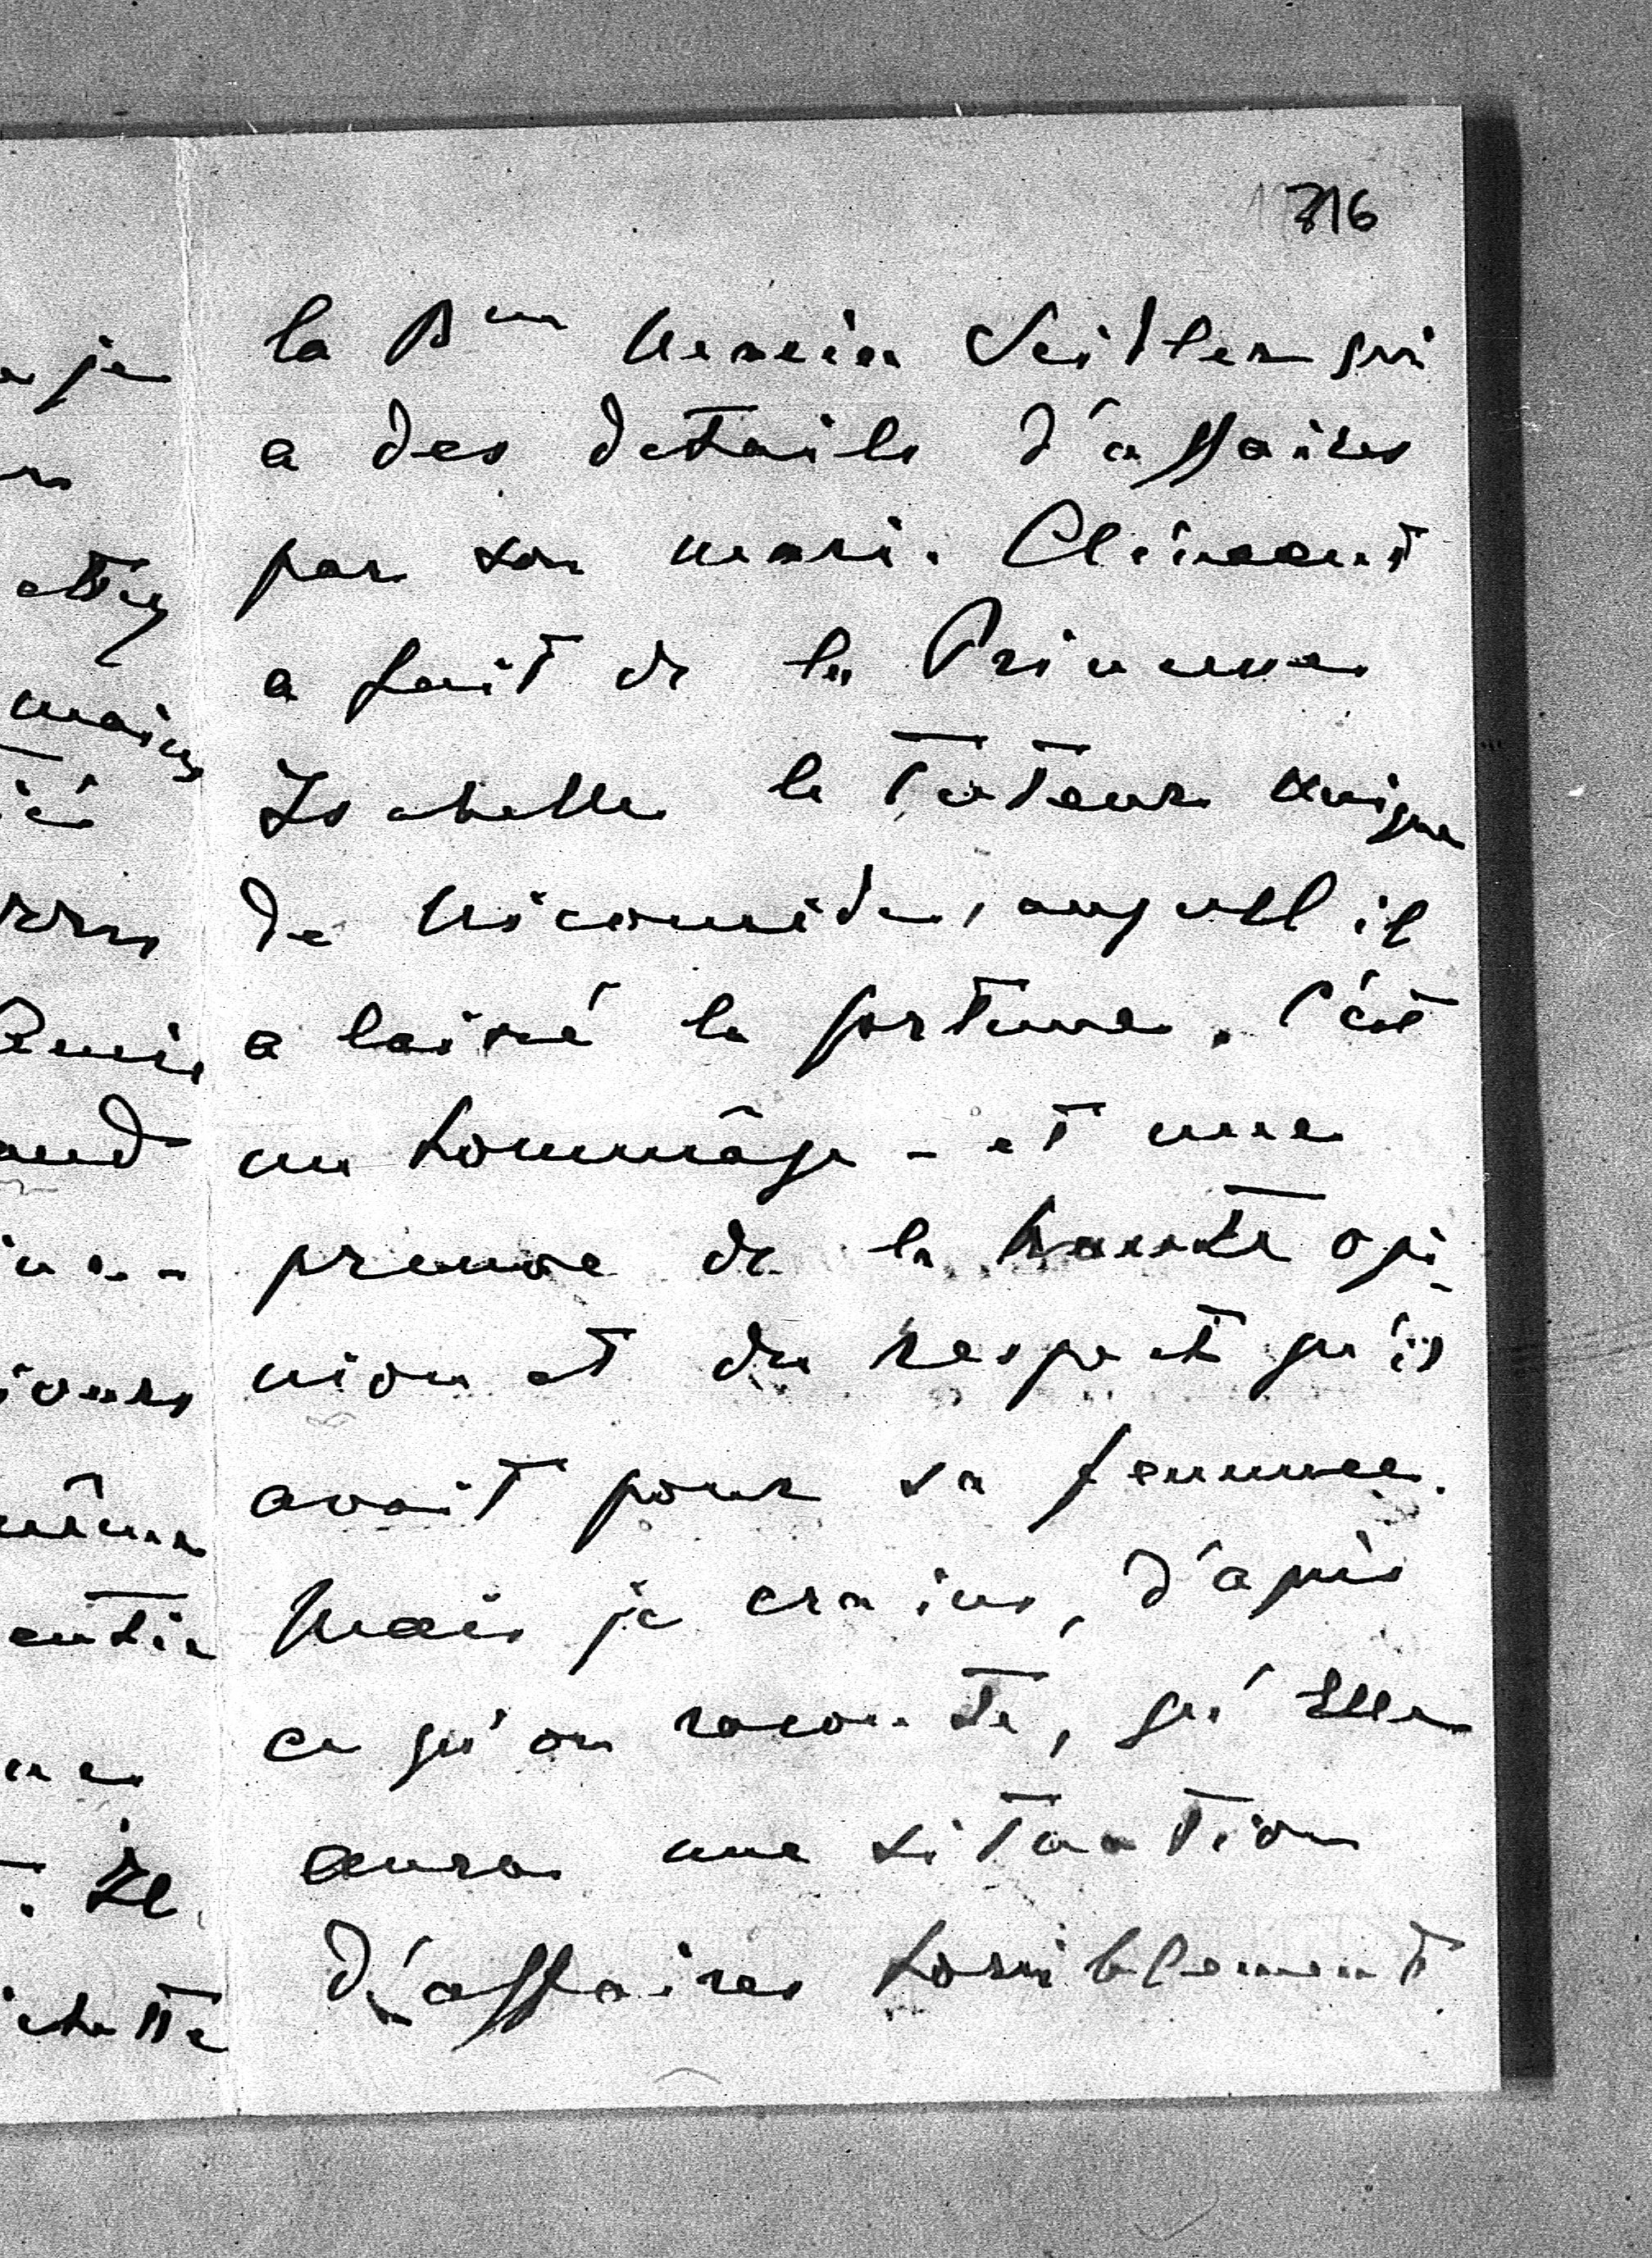 716
la Bnne Maria Seidler qui
a des details d'affaires
par son mari. Clément
a fait de la Princesse
Isabelle le tuteur unique
de Nicomède, auquel il
a laissé la fortune. C'est
un hommâge - et une
preuve de la haute opi-
nion et du respect qu'il
avait pour sa femme.
Mais je crains, d'après
ce qu'on raconte, qu'Elle
aura une situation
d'affaires horriblement
je
mains
même
Il